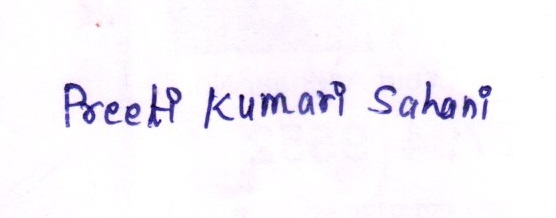 Preeti Kumari Sahani